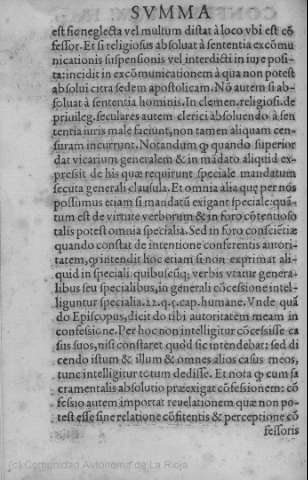 SVMMA
est sic neglecta vel multum distat à loco vbi est cõ
fessor. Et si religiosus absoluat à sententia excõmu
nicationis suspensionis vel interdicti in iure posi
ta: incidit in excõmunicationem à qua non potest
absolui citra sedem apostolicam. Nõ autem si ab-
soluat à sententia hominis. In clemen. religiosi. de
priuileg. seculares autem clerici absoluendo à sen
tentia iuris male faciunt, non tamen aliquam cen-
suram incurrunt. Notandum ꝙ quando superior
dat vicarium generalem & in mãdato aliquid ex-
pressit de his quæ requirunt speciale mandatum
secuta generali clausula. Et omnia alia quę per nós
possumus etiam si mandatũ exigant speciale: quã-
tum est de virtute verborum & in foro cõtentioso
talis potest omnia specialia. Sed in foro consciẽtiæ
quando constat de intentione conferentis autori-
tatem, ꝙ intendit hoc etiam si non exprimat ali-
quid in speciali quibuscũq; verbis vtatur genera-
libus seu specialibus, in generali cõcessione intel-
liguntur specialia. 22. q. 5. cap. humane. Vnde quã
do Episcopus, dicit do tibi autoritatem meam in
confessione. Per hoc non intelligitur cõcessisse ca
sus suos, nisi constaret quòd sic intendebat: sed di
cendo istum & illum & omnes alios casus meos,
tunc intelligitur totum dedisse. Et nota ꝙ cum sa
cramentalis absolutio præexigat cõfessionem: cõ
fessio autem importat reuelationem quæ non po-
test esse sine relatione cõfitentis & perceptione cõ
fessoris
(c) Comunidad Autónoma de La Rioja